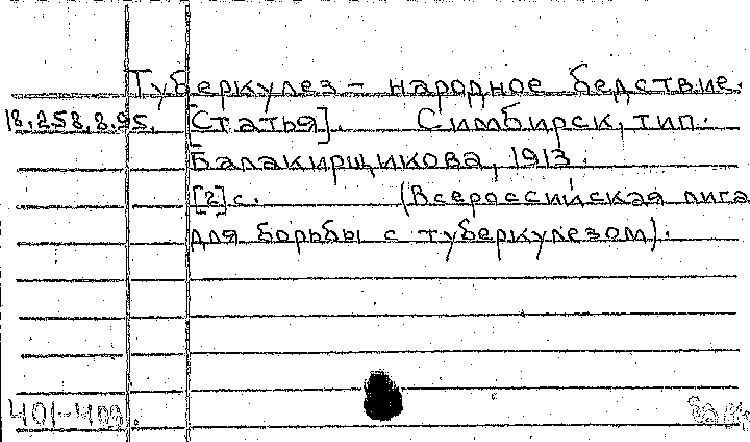 Туберкулез – народное бедствие.
18.258.8.95. [Статья]. Симбирск, тип.
Балакирщикова, 1913.
[2]с. (Всероссийская лига
для борьбы с туберкулезом).
401-409.